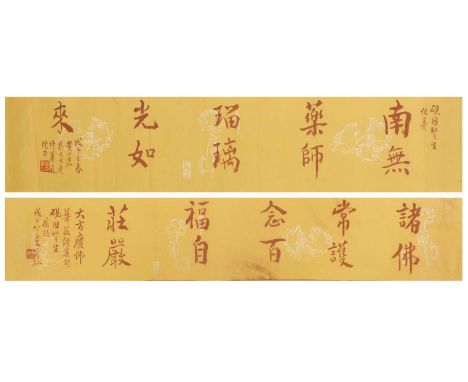 硯田賢生
供養
南無
藥師
瑠璃
光如
來
戊子季春
諸佛
常護
念百
福自
莊嚴
大方廣佛
華嚴經集句
硯田賢生
戊子